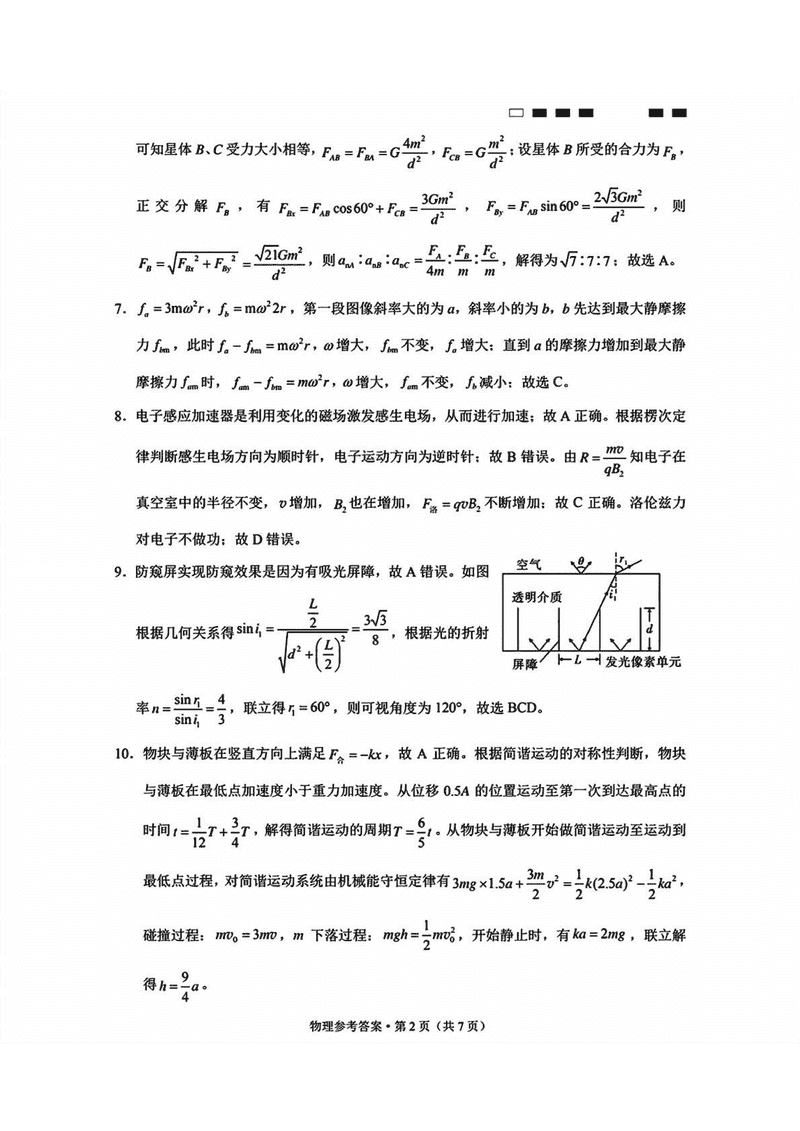 可知星体 B、C 受力大小相等，F_{AB} = F_{BA} = G\frac{4m^2}{d^2}，F_{CB} = G\frac{m^2}{d^2}；设星体 B 所受的合力为 F_B，
正交分解 F_B，有 F_{Bx} = F_{AB}\cos60° + F_{CB} = \frac{3Gm^2}{d^2}，F_{By} = F_{AB}\sin60° = \frac{2\sqrt{3}Gm^2}{d^2}，则
F_B = \sqrt{F_{Bx}^2 + F_{By}^2} = \frac{\sqrt{21}Gm^2}{d^2}，则 a_{nA}∶a_{nB}∶a_{nC} = \frac{F_A}{4m}∶\frac{F_B}{m}∶\frac{F_C}{m}，解得为 \sqrt{7}∶7∶7；故选 A。
7．f_a = 3mω^2r，f_b = mω^22r，第一段图像斜率大的为 a，斜率小的为 b，b 先达到最大静摩擦
力 f_{bm}，此时 f_a − f_{bm} = mω^2r，ω 增大，f_{bm} 不变，f_a 增大；直到 a 的摩擦力增加到最大静
摩擦力 f_{am} 时，f_{am} − f_{bm} = mω^2r，ω 增大，f_{am} 不变，f_b 减小；故选 C。
8．电子感应加速器是利用变化的磁场激发感生电场，从而进行加速；故 A 正确。根据楞次定
律判断感生电场方向为顺时针，电子运动方向为逆时针；故 B 错误。由 R = \frac{mv}{qB_2} 知电子在
真空室中的半径不变，v 增加，B_2 也在增加，F_洛 = qvB_2 不断增加；故 C 正确。洛伦兹力
对电子不做功；故 D 错误。
9．防窥屏实现防窥效果是因为有吸光屏障，故 A 错误。如图
根据几何关系得 \sin i_1 = \frac{\frac{L}{2}}{\sqrt{d^2 + (\frac{L}{2})^2}} = \frac{3\sqrt{3}}{8}，根据光的折射
率 n = \frac{\sin r_1}{\sin i_1} = \frac{4}{3}，联立得 r_1 = 60°，则可视角度为 120°，故选 BCD。
空气 θ r_1
透明介质 i_1
d
屏障 L 发光像素单元
10．物块与薄板在竖直方向上满足 F_合 = −kx，故 A 正确。根据简谐运动的对称性判断，物块
与薄板在最低点加速度小于重力加速度。从位移 0.5A 的位置运动至第一次到达最高点的
时间 t = \frac{1}{12}T + \frac{3}{4}T，解得简谐运动的周期 T = \frac{6}{5}t。从物块与薄板开始做简谐运动至运动到
最低点过程，对简谐运动系统由机械能守恒定律有 3mg × 1.5a + \frac{3m}{2}v^2 = \frac{1}{2}k(2.5a)^2 − \frac{1}{2}ka^2，
碰撞过程：mv_0 = 3mv，m 下落过程：mgh = \frac{1}{2}mv_0^2，开始静止时，有 ka = 2mg，联立解
得 h = \frac{9}{4}a。
物理参考答案·第 2 页（共 7 页）